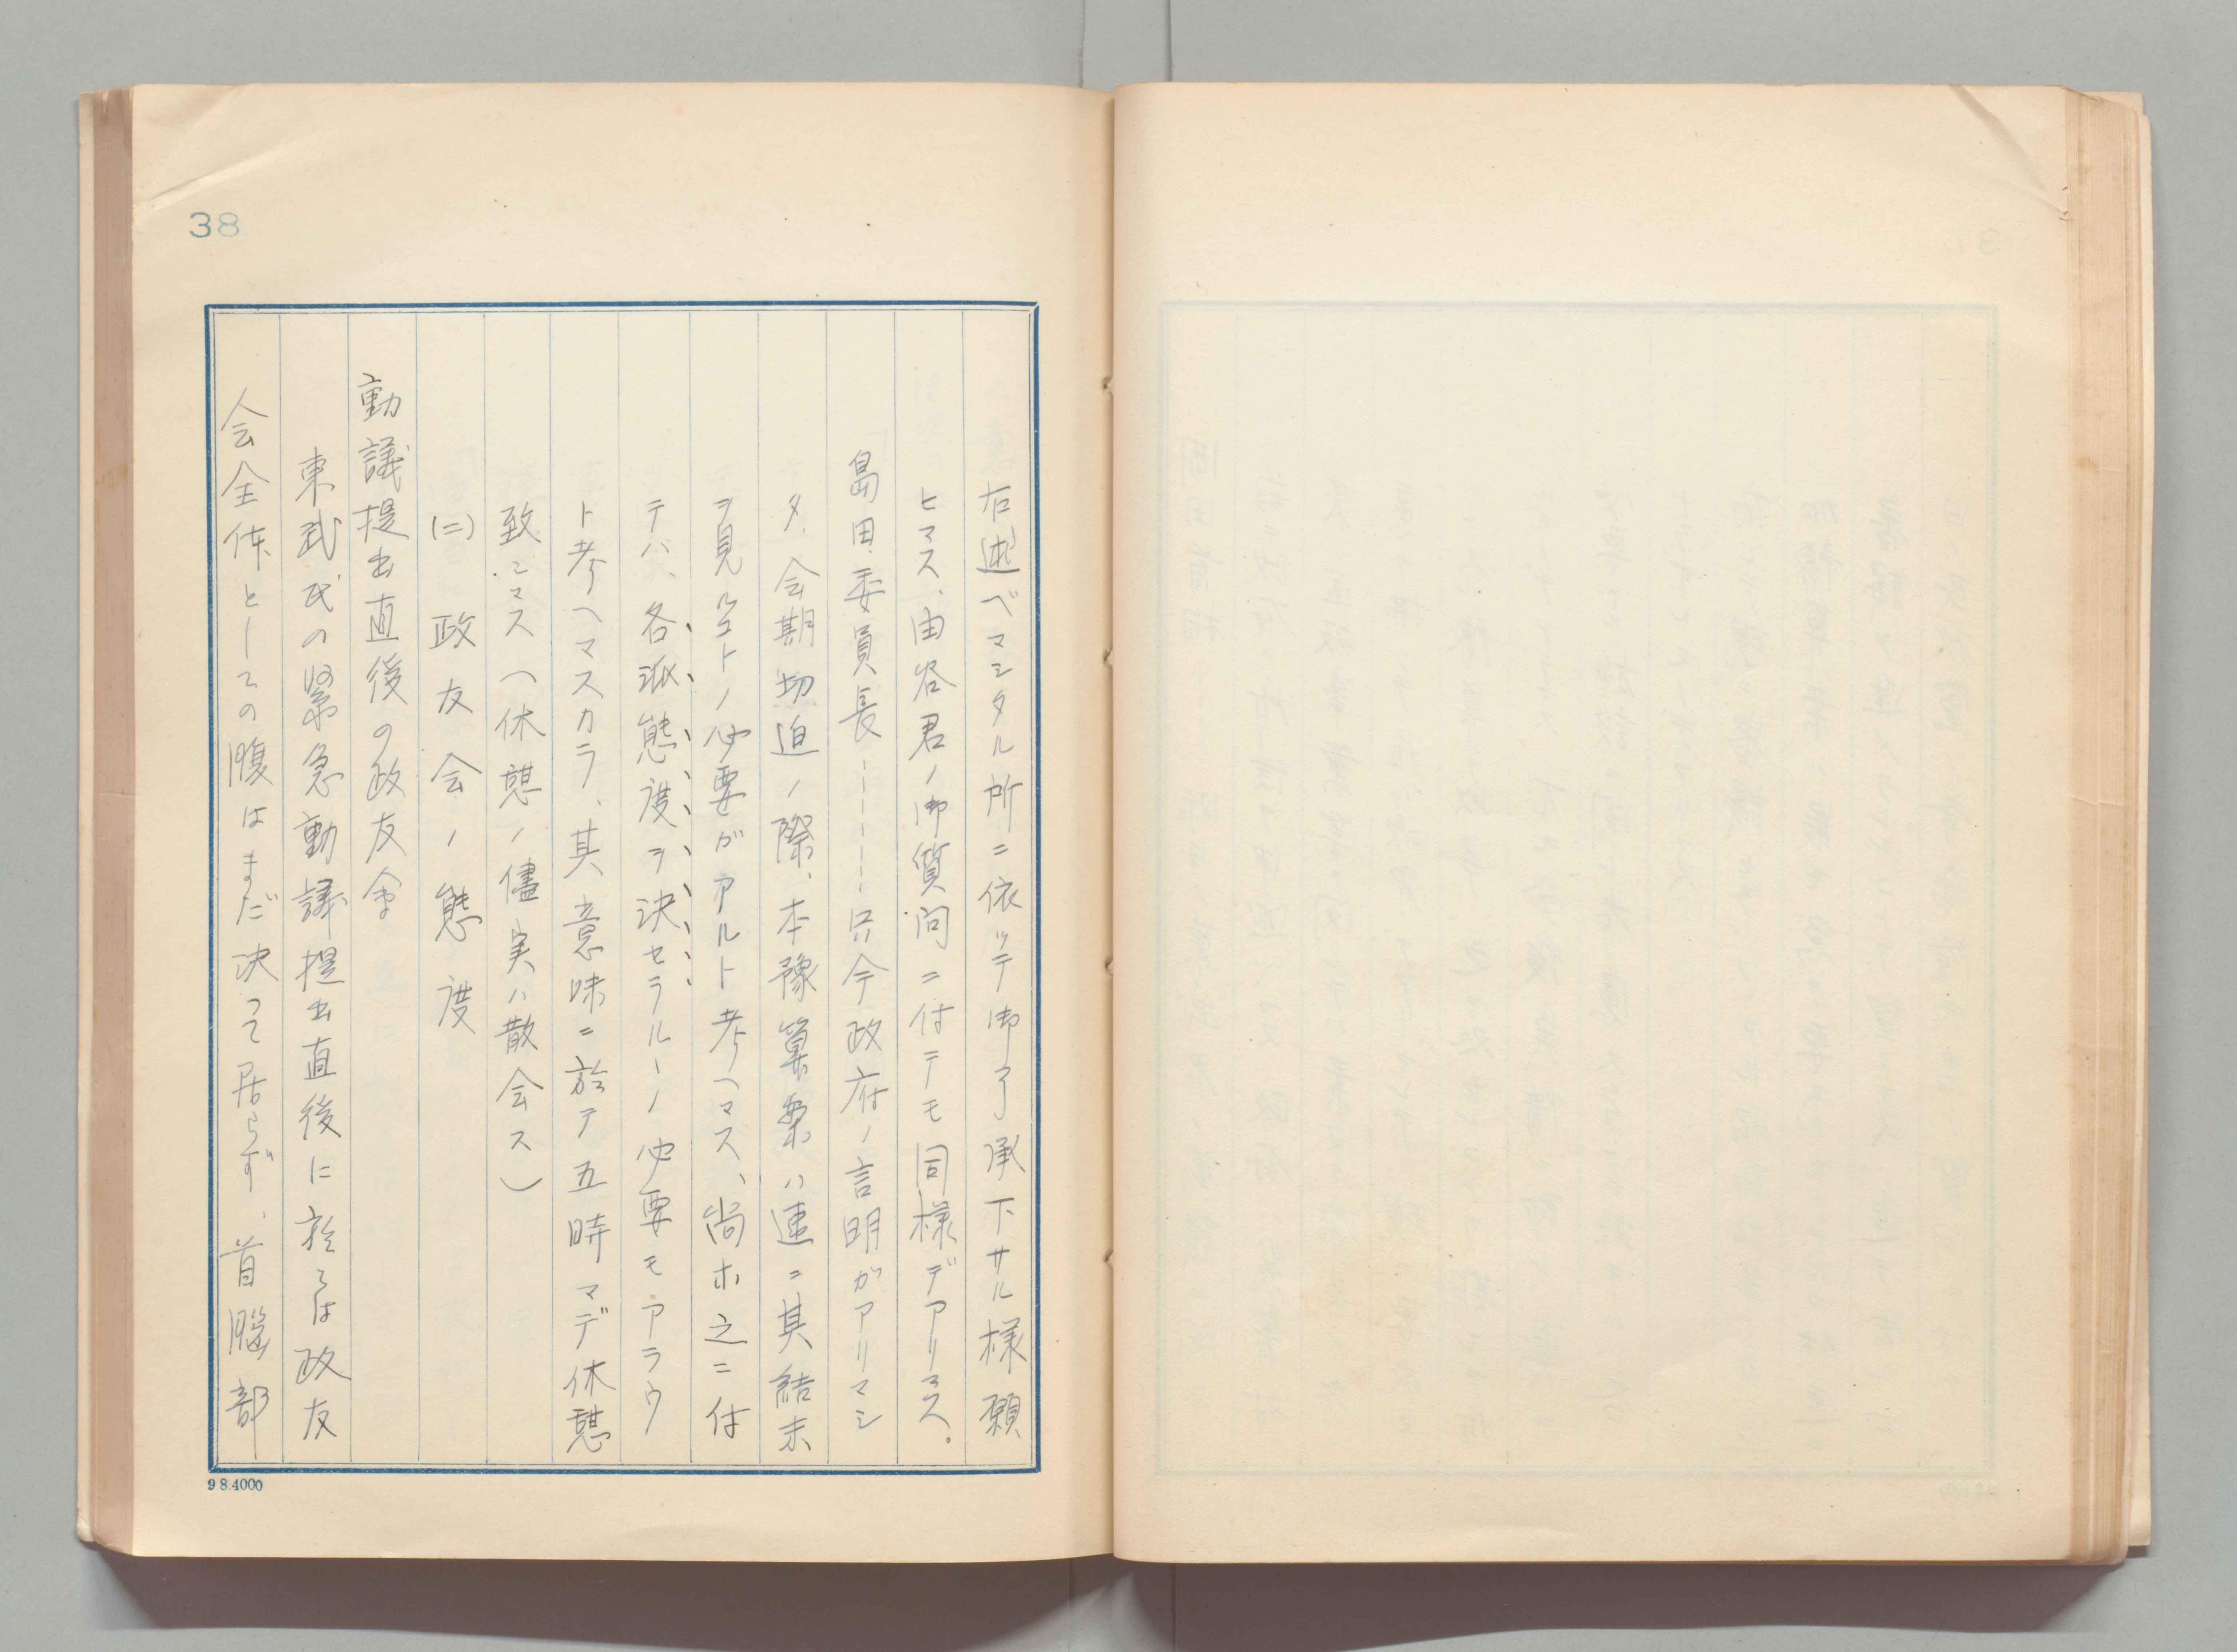 38
右述ベマシタル所ニ依ッテ御了承下サル様願
ヒマス、由谷君ノ御質問ニ付テモ同様デアリマス。
島田委員長------只今政府ノ言明ガアリマシ
タ、会期切迫ノ際、本豫算案ハ速ニ其結末
ヲ見ルコトノ必要ガアルト考ヘマス、尚ホ之ニ付
テハ、各派態度ヲ決セラルヽノ必要モアラウ
ト考ヘマスカラ、其意味ニ於テ五時マデ休憩
致シマス(休憩ノ儘実ハ散会ス)
(ニ) 政友会ノ態度
動議提出直後の政友会
東武氏の緊急動議提出直後に於ては政友
会全体としての腹はまだ決って居らず、首脳部
98.4000